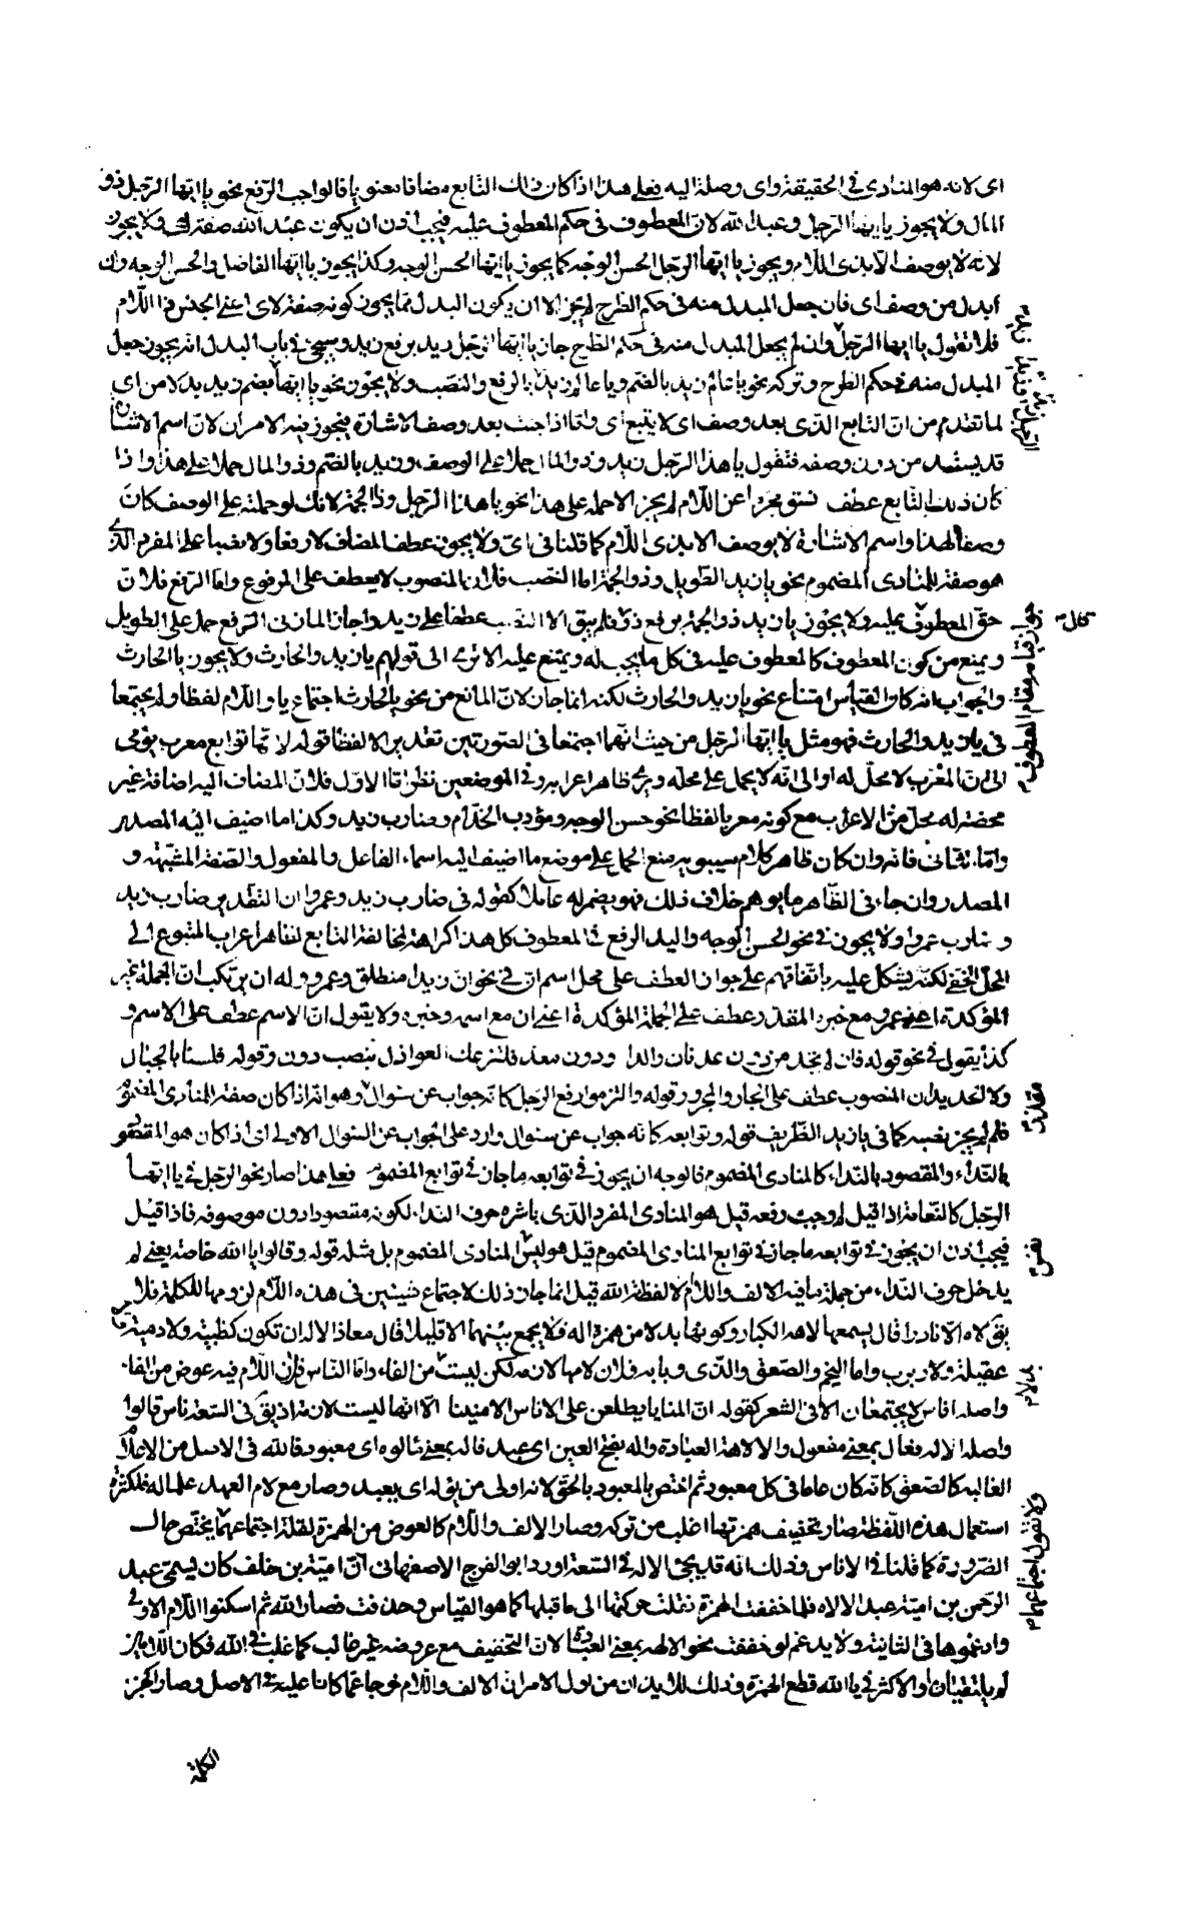 اى لانه هو المنادى فى الحقيقة واى وصلة اليه فعلى هذا اذا كان ذلك التابع مضافا معنويا قالوا جب الرفع نحو يا ايها الرجل ذو
المال ولا يجوز يا ايها الرجل وعبد الله لان المعطوف فى حكم المعطوف عليه فيجب اذن ان يكون عبد الله صفة لاى ولا يجوز
لانه لا يوصف الا بذى اللام ويجوز يا ايها الرجل الحسن الوجه كما يجوز يا ايها الحسن الوجه وكذا يجوز يا ايها الفاضل والحسن الوجه وان
ابدل من وصف اى فان جعل المبدل منه فى حكم الطرح لم يجز الا ان يكون البدل مما يجوز كونه صفة لاى اعنى الجنس ذا اللام
فلا تقول يا ايها الرجل وان لم يجعل المبدل منه فى حكم الطرح جاز يا ايها الرجل زيد برفع زيد وسيجئ فى باب البدل انه يجوز جعل
المبدل منه فى حكم الطرح وتركه نحو يا عالم زيد بالضم ويا عالم زيد بالرفع والنصب ولا يجوز نحو يا ايها بضم زيد بدلا من اى
لما تقدم من ان التابع الذى بعد وصف اى لا يتبع اى واما اذا جئت بعد وصف الاشارة فيجوز فيه الامران لان اسم الاشارة
قد يستبد من دون وصفه فتقول يا هذا الرجل زيد وذو المال حملا على الوصف وزيد بالضم وذو المال حملا على هذا واذا
كان ذلك التابع عطف نسق مجردا عن اللام لم يجز الا حمله على هذا نحو يا هذا الرجل وذا الجمة لانك لو حملته على الوصف كان
وصفا لهذا واسم الاشارة لا يوصف الا بذى اللام كما قلنا فى اى ولا يجوز عطف المضاف لا رفعا ولا نصبا على المفرد الذى
هو صفة للمنادى المضموم نحو يا زيد الطويل وذو الجمة اما النصب فلان المنصوب لا يعطف على المرفوع واما الرفع فلان
حق المعطوف عليه ولا يجوز يا زيد ذو الجمة برفع ذو فلم يبق الا النصب عطفا على زيد واجاز المازنى الرفع حملا على الطويل
ويمنع من كون المعطوف كالمعطوف عليه فى كل ما يجب له ويمتنع عليه الا ترى الى قولهم يا زيد والحارث ولا يجوز يا الحارث
والجواب انه كان القياس امتناع نحو يا زيد والحارث لكنه انما جاز لان المانع من نحو يا الحارث اجتماع يا واللام لفظا ولم يجتمعا
فى يا زيد والحارث فهو مثل يا ايها الرجل من حيث انهما اجتمعا فى الصورتين تقديرا لا لفظا قوله لانها توابع معرب يومى
الى ان المعرب لا محل له او الى انه لا يحمل على محله ويرجح ظاهر اعرابه وفى الموضعين نظر اما الاول فلان المضاف اليه اضافة غير
محضة له محل من الاعراب مع كونه معربا لفظا نحو حسن الوجه ومؤدب الخدام وضارب زيد وكذا ما اضيف اليه المصدر
واما الثانى فانه وان كان ظاهر كلام سيبويه منع الحمل على موضع ما اضيف اليه اسماء الفاعل والمفعول والصفة المشبهة و
المصدر وان جاء فى الظاهر ما يوهم خلاف ذلك فهو يضمر له عاملا كقوله فى ضارب زيد وعمرا ان التقدير ضارب زيد
وضارب عمرا ولا يجوز فى نحو الحسن الوجه واليد الرفع فى المعطوف كل هذا كراهة لمخالفة التابع لظاهر اعراب المتبوع الى
المحل الخفى لكنه يشكل عليه باتفاقهم على جواز العطف على محل اسم ان فى نحو ان زيدا منطلق وعمرو وله ان يرتكب ان الجملة غير
المؤكدة اعنى عمرو مع خبره المقدر عطف على الجملة المؤكدة اعنى ان مع اسمه وخبره ولا يقول ان الاسم عطف على الاسم و
كذا يقول فى نحو قوله فان لم تجد من دون عدنان والدا ودون معد فلتزعك العواذل بنصب دون وقوله فلسنا بالجبال
ولا الحديدا ان المنصوب عطف على الجار والمجرور قوله والتزموا رفع الرجل كانه جواب عن سؤال وهو انه اذا كان صفة المنادى المضموم
فلم لم يجز نصبه كما فى يا زيد الظريف قوله وتوابعه كانه جواب عن سؤال وارد على الجواب عن السؤال الاول اى اذا كان هو المقصود
بالنداء والمقصود بالنداء كالمنادى المضموم فالوجه ان يجوز فى توابعه ما جاز فى توابع المضموم فعلى هذا صار نحو الرجل فى يا ايها
الرجل كالنعامة اذا قيل لم وجب رفعه قيل هو المنادى المفرد الذى باشره حرف النداء لكونه مقصودا دون موصوفه فاذا قيل
فيجب اذن ان يجوز فى توابعه ما جاز فى توابع المنادى المضموم قيل هو ليس المنادى المضموم بل مثله قوله وقالوا يا الله خاصة يعنى لم
يدخل حرف النداء من جملة ما فيه الالف واللام الا لفظة الله قيل انما جاز ذلك لاجتماع شيئين فى هذه اللام لزومها للكلمة فلا
يقال لاه الا نادرا قال يسمعها لاهه الكبار وكونها بدلا من همزة اله فلا يجمع بينهما الا قليلا قال معاذ الاله ان تكون كظبية ولا دمية ولا
عقيلة ولا ربرب واما النجم والصعق والذى وبابه فلان لامها لازمة لكن ليست من الفاء واما الناس فان اللام فيه عوض من الفاء
واصله اناس لا يجتمعان الا فى الشعر كقوله ان المنايا يطلعن على الاناس الامنينا الا انها ليست لازمة اذ يقال فى السعة ناس قالوا
واصل الاله فعال بمعنى مفعول والالاهة العبادة واله بفتح العين اى عبد فاله بمعنى مألوه اى معبود فالله فى الاصل من الاعلام
الغالبة كالصعق كانه كان عاما فى كل معبود ثم اختص بالمعبود بالحق لانه اولى من يؤله اى يعبد وصار مع لام العهد علما له فلكثرة
استعمال هذه اللفظة صار تخفيف همزتها اغلب من تركه وصار الالف واللام كالعوض من الهمزة لقلة اجتماعهما يختص حال
الضرورة كما قلنا فى الاناس وذلك انه قد يجئ الاله فى السعة اورد ابو الفرج الاصفهانى ان امية بن خلف كان يسمى عبد
الرحمن بن امية عبد الالاه فلما خففت الهمزة نقلت حركتها الى ما قبلها كما هو القياس وحذفت فصار الله ثم اسكنوا اللام الاولى
وادغموها فى الثانية ولا يدغم لو خففت نحو الالهة بمعنى العبادة لان التخفيف مع عروضه غير غالب كما غلب فى الله فكان اللامان
لم يلتقيا والاكثر فى يا الله قطع الهمزة وذلك للايذان من اول الامر ان الالف واللام خرجا عما كانا عليه فى الاصل وصارا كجزء
الكلمة